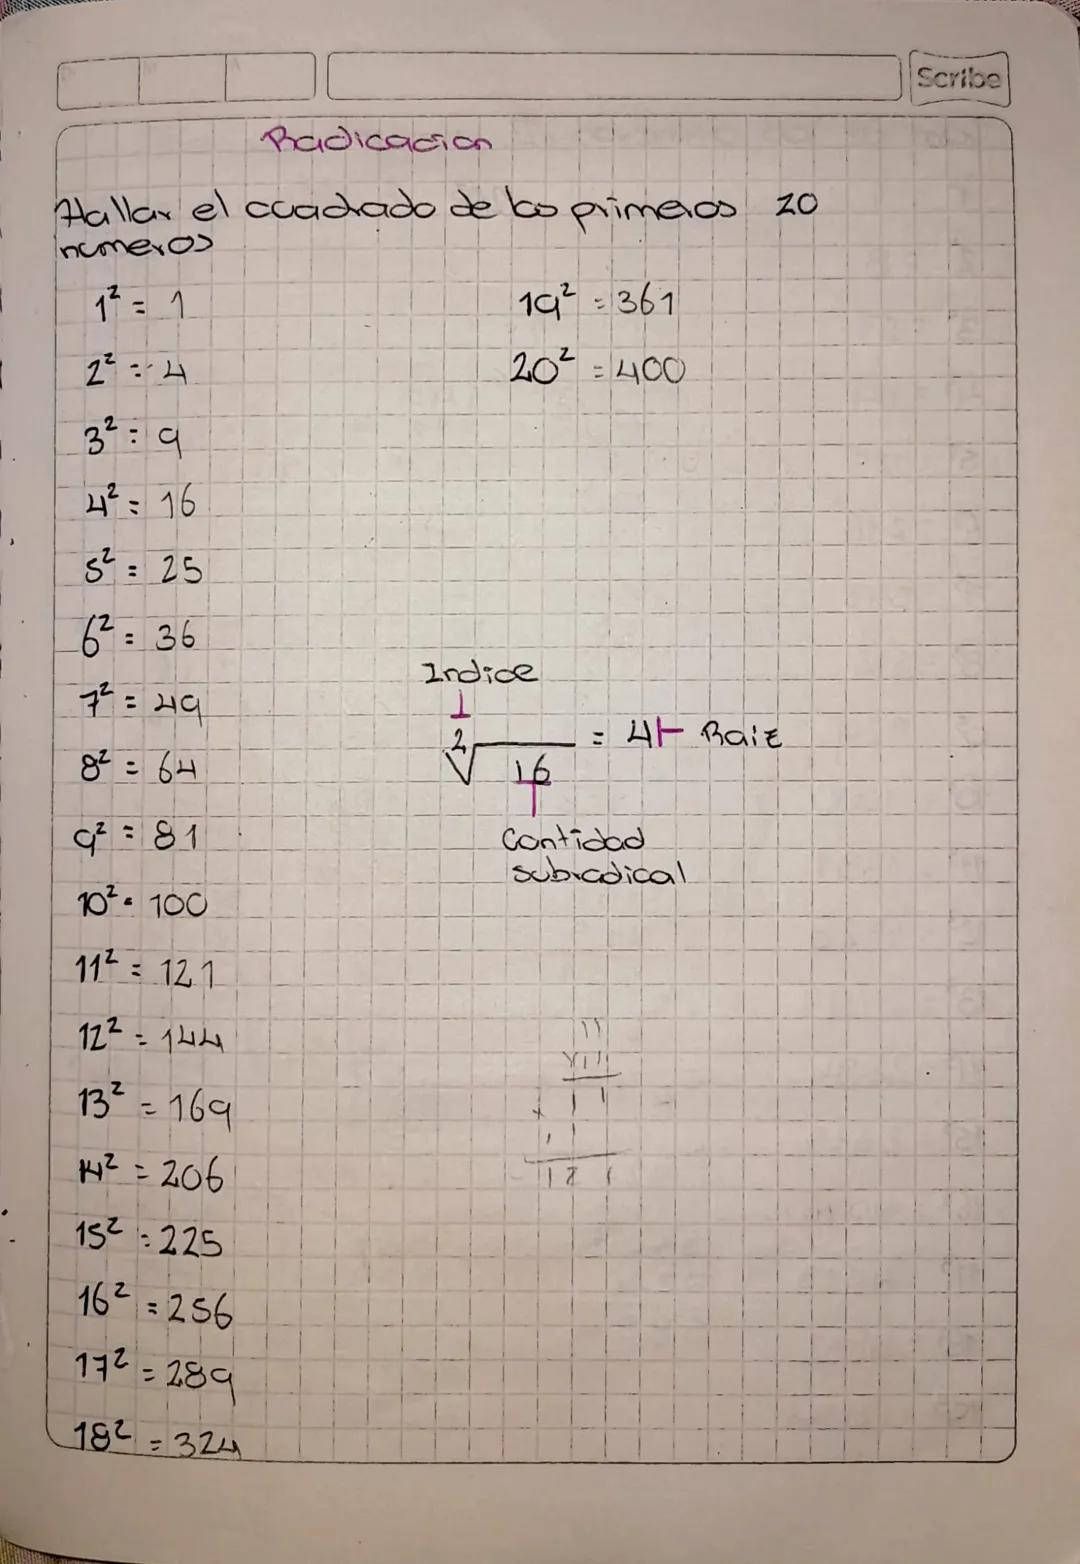 Scribe
Radicacion
Hallar el cuadrado de los primeros 20
numeros
1² = 1
2² = 4
3² = 9
4² = 16
5² = 25
6² = 36
7² = 49
8² = 64
9² = 81
10² = 100
11² = 121
12² = 144
13² = 169
14² = 206
15² = 225
16² = 256
17² = 289
18² = 324
19² = 361
20² = 400
Indice
2√16 = 4 Raiz
Cantidad
subradical
11
x11
11
+
11
121